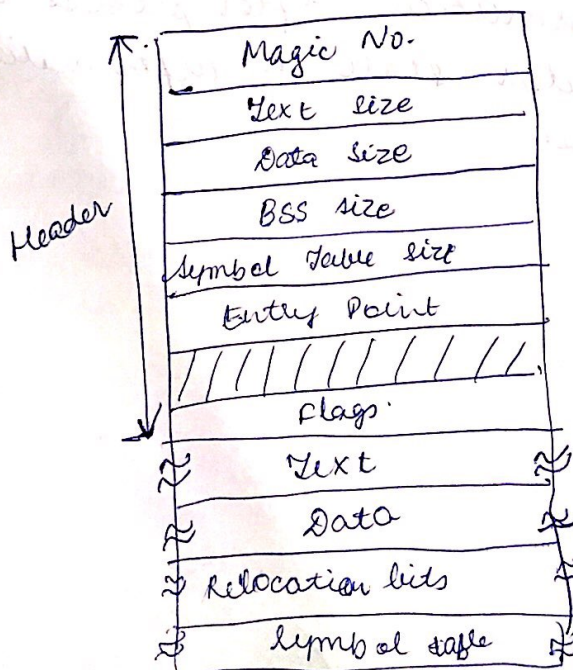 Magic No.
Text size
Data size
BSS size
Header
Symbol Table size
Entry Point
Flags.
Text
Data
Relocation bits
Symbol table